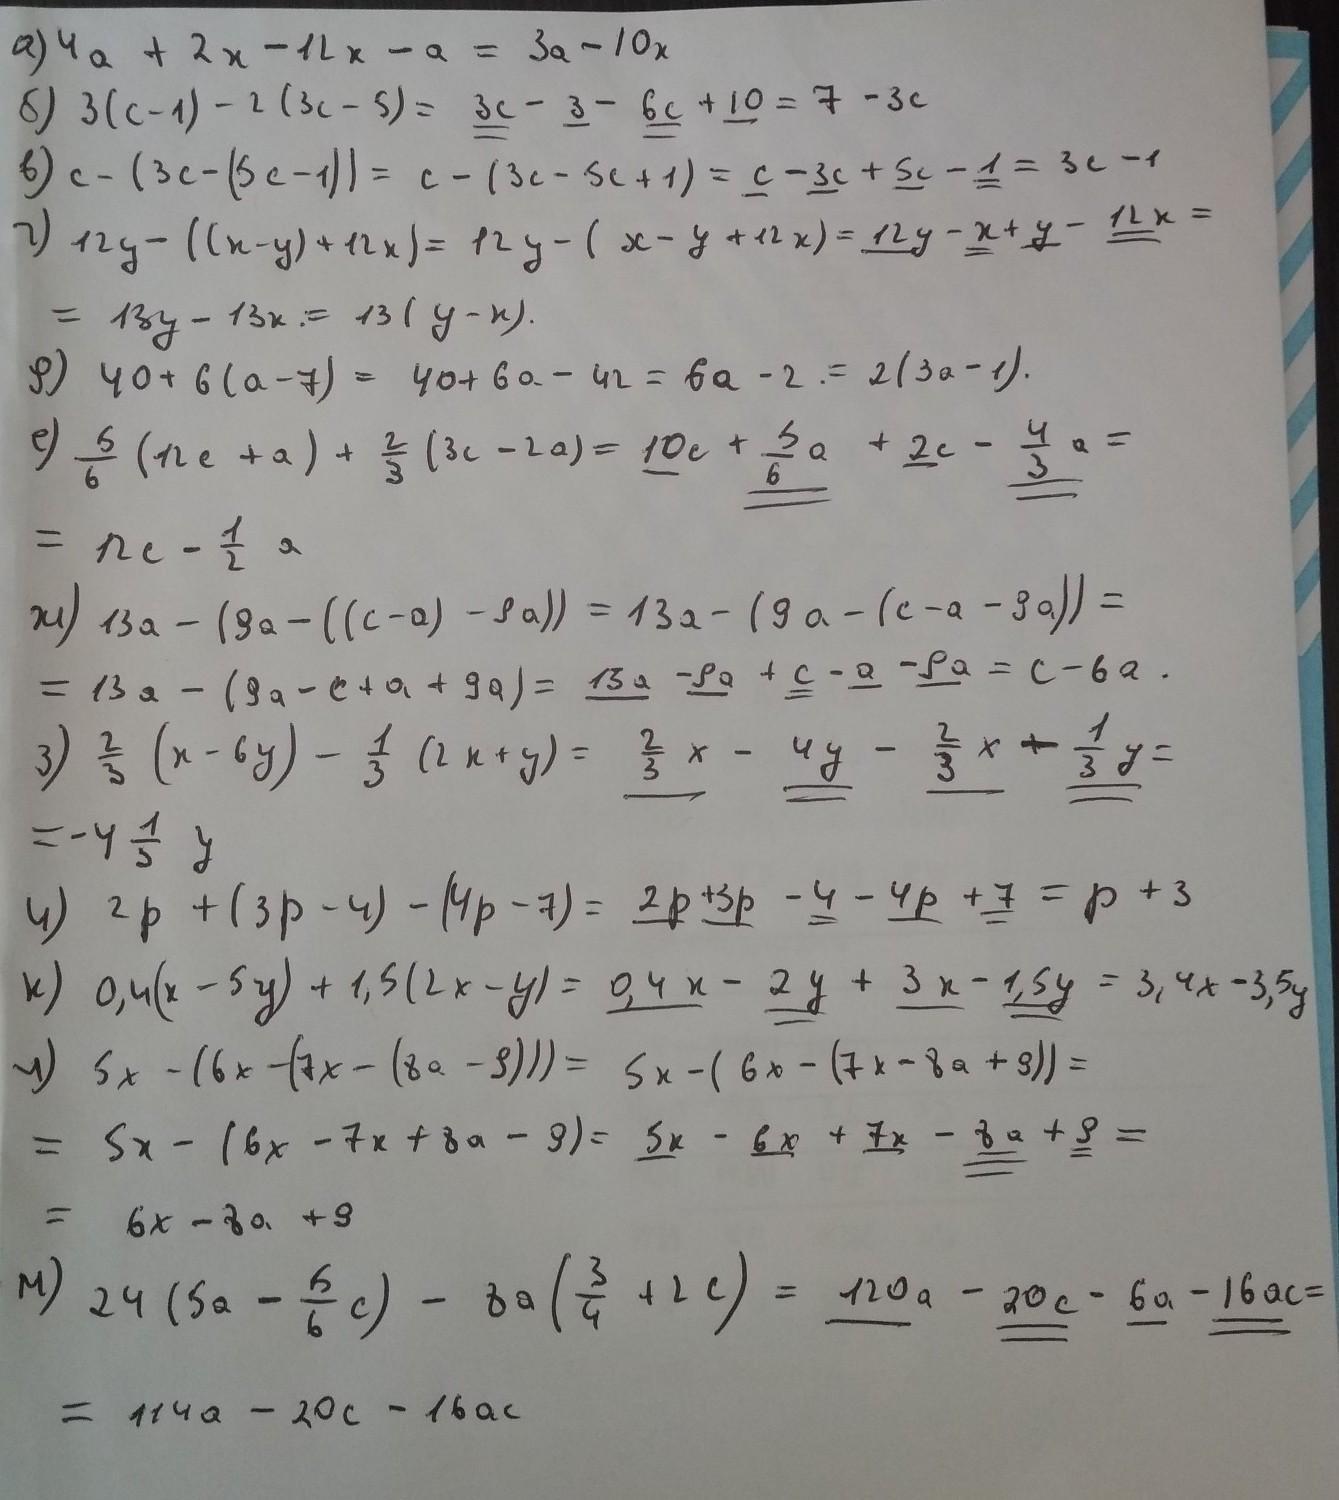 а) 4a + 2x - 12x - a = 3a - 10x
б) 3(c-1) - 2(3c-5) = 3c - 3 - 6c + 10 = 7 - 3c
в) c - (3c - (5c-1)) = c - (3c - 5c + 1) = c - 3c + 5c - 1 = 3c - 1
г) 12y - ((x-y) + 12x) = 12y - (x - y + 12x) = 12y - x + y - 12x =
= 13y - 13x = 13(y-x).
д) 40 + 6(a-7) = 40 + 6a - 42 = 6a - 2 = 2(3a-1).
е) 5/6 (12c + a) + 2/3 (3c - 2a) = 10c + 5/6 a + 2c - 4/3 a =
= 12c - 1/2 a
ж) 13a - (9a - ((c-a) - 9a)) = 13a - (9a - (c - a - 9a)) =
= 13a - (9a - c + a + 9a) = 13a - 9a + c - a - 9a = c - 6a.
з) 2/3 (x - 6y) - 1/3 (2x + y) = 2/3 x - 4y - 2/3 x - 1/3 y =
= -4 1/3 y
и) 2p + (3p - 4) - (4p - 7) = 2p + 3p - 4 - 4p + 7 = p + 3
к) 0,4(x - 5y) + 1,5(2x - y) = 0,4x - 2y + 3x - 1,5y = 3,4x - 3,5y
л) 5x - (6x - (7x - (8a - 9))) = 5x - (6x - (7x - 8a + 9)) =
= 5x - (6x - 7x + 8a - 9) = 5x - 6x + 7x - 8a + 9 =
= 6x - 8a + 9
м) 24 (5a - 5/6 c) - 8a (3/4 + 2c) = 120a - 20c - 6a - 16ac =
= 114a - 20c - 16ac